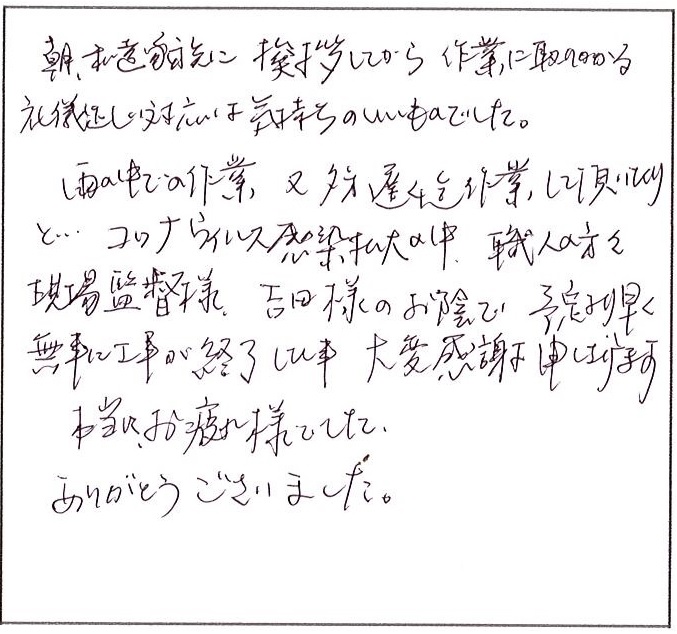 朝、お客先に挨拶してから作業に取りかかる
礼儀正しい対応は気持ちのいいものでした。
雨の中での作業、又夕方遅くまで作業して頂いたり
と… コロナウイルス感染拡大の中、職人の方々
現場監督様、吉田様のお陰で 予定より早く
無事に工事が終了した事 大変感謝を申し上げます
本当にお疲れ様でした、
ありがとうございました。